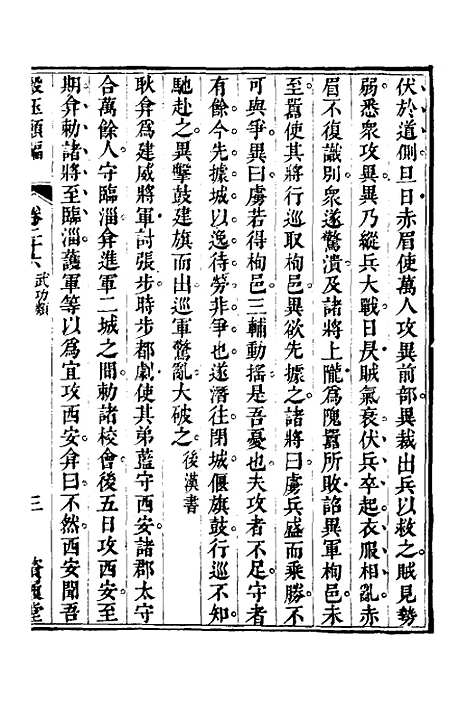 伏於道側旦日赤眉使萬人攻異前部異裁出兵以救之賊見勢
弱悉衆攻異異乃縱兵大戰日昃賊氣衰伏兵卒起衣服相亂赤
眉不復識別衆遂驚潰及諸將上隴爲隗囂所敗詔異軍栒邑未
至囂使其將行巡取栒邑異欲先據之諸將曰虜兵盛而乘勝不
可與爭異曰虜若得栒邑三輔動搖是吾憂也夫攻者不足守者
有餘今先據城以逸待勞非爭也遂潛往閉城偃旗鼓行巡不知
馳赴之異擊鼓建旗而出巡軍驚亂大破之後漢書
耿弇爲建威將軍討張步時步都劇使其弟藍守西安諸郡太守
合萬餘人守臨淄弇進軍二城之間勅諸校會後五日攻西安至
期弇勅諸將至臨淄護軍等以爲宜攻西安弇曰不然西安聞吾
類編
卷二十六 武功類
三
堂